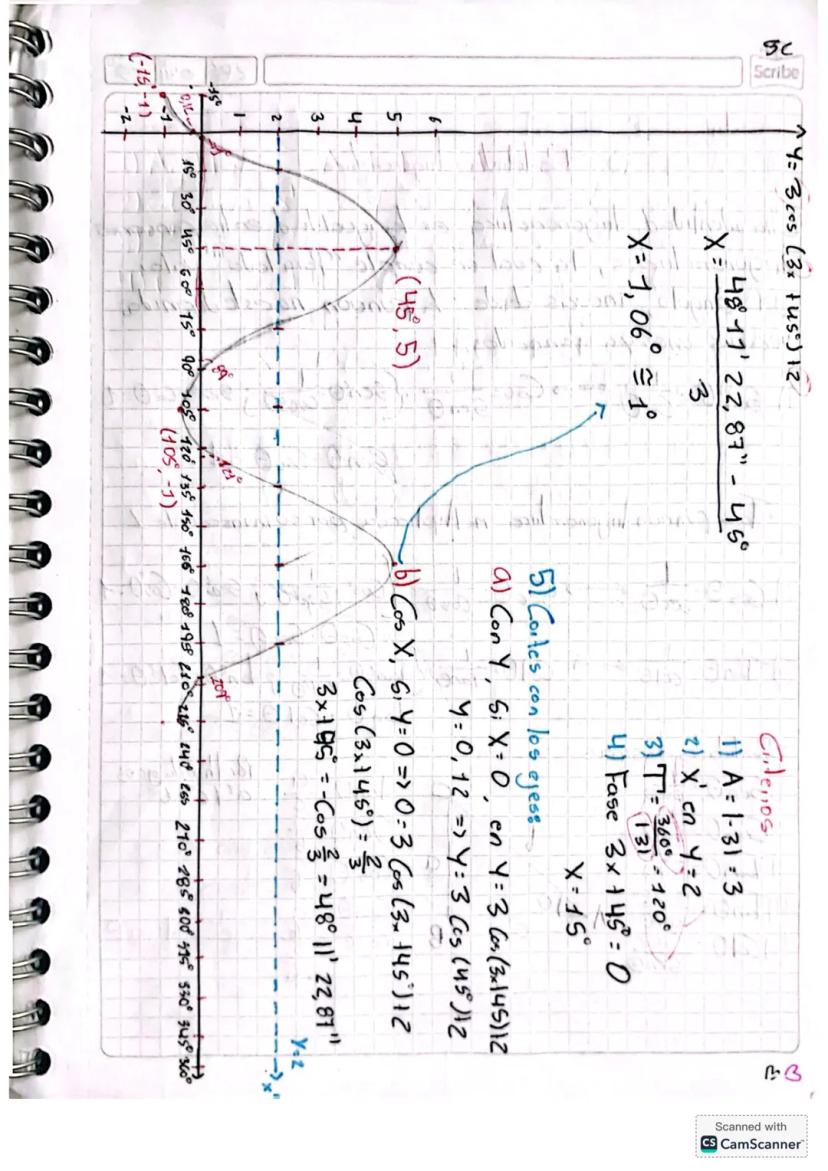 5C
Scribe
y = 3 cos (3x + 45°) + 2
X = 48° 11' 22,87" - 45°
3
X = 1,06° ≅ 1°
Criterios
1) A = |-3| = 3
2) X' en y = 2
3) T = 360° = 120°
|3|
4) Fase 3x + 45° = 0
X = 15°
5) Cortes con los ejes:
a) Con Y, si X = 0, en Y = 3 Cos (3x+45)+2
y = 0,12 => y = 3 Cos (45°)+2
b) Cos X, si y = 0 => 0 = 3 Cos (3x + 45°)+2
Cos (3x+45°) = 2
3
3x + 45° = -Cos 2 = 48° 11' 22,87"
3
(45°, 5)
(-15, -1)
(105°, -1)
-15°
0,12
1°
89°
121°
209°
6
5
4
3
2
1
-1
-2
15° 30° 45° 60° 75° 90° 105° 120° 135° 150° 165° 180° 195° 210° 225° 240° 255 270° 285° 300° 315° 330° 345° 360°
y=2
x'
Scanned with
CS CamScanner